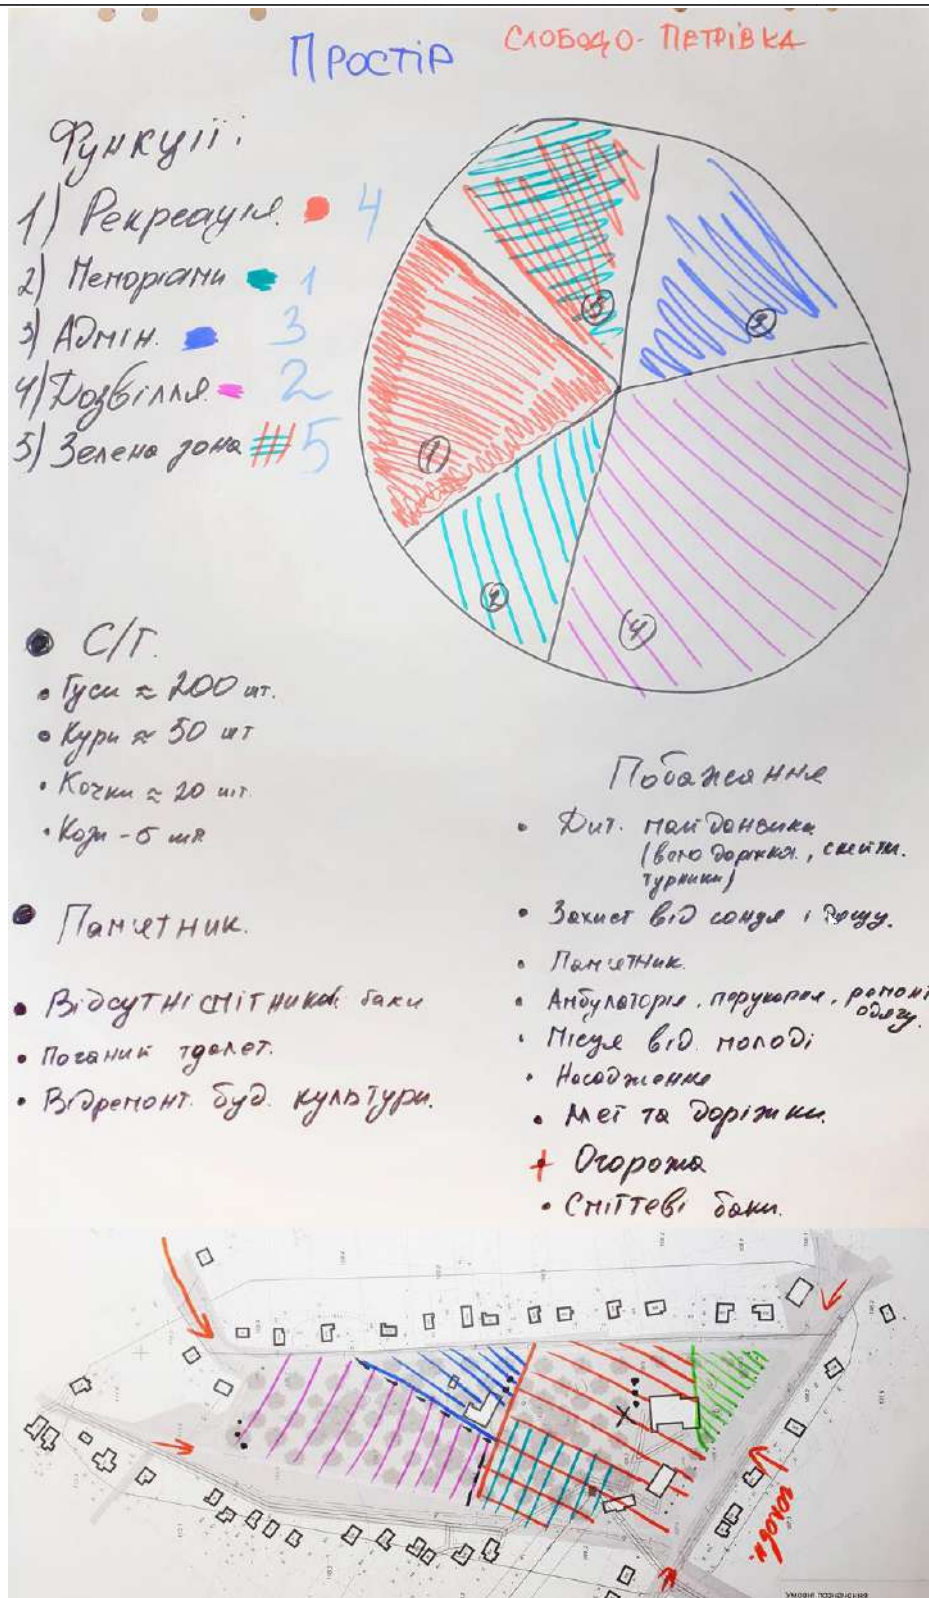 Простір
СЛОБОДО-ПЕТРІВКА
Функції:
1) Рекреація. 4
2) Меморіали 1
3) Адмін. 3
4) Дозвілля. 2
5) Зелена зона 5
5
3
1
2
4
С/Г.
Гуси ≈ 200 шт.
Кури ≈ 50 шт
Качки ≈ 20 шт.
Кози - 5 шт
Пам'ятник.
Відсутні смітники баки
Поганий туалет.
Відремонт. буд. культури.
Побажання
Дит. майданчика
(вело доріжка, скейти.
турніки)
Захист від сонця і дощу.
Пам'ятник.
Амбулаторія, перукарня, ремонт
одягу.
Місця від. молоді
Насадження
Алеї та доріжки.
+ Огорожа
Сміттєві баки.
Умовні позначення